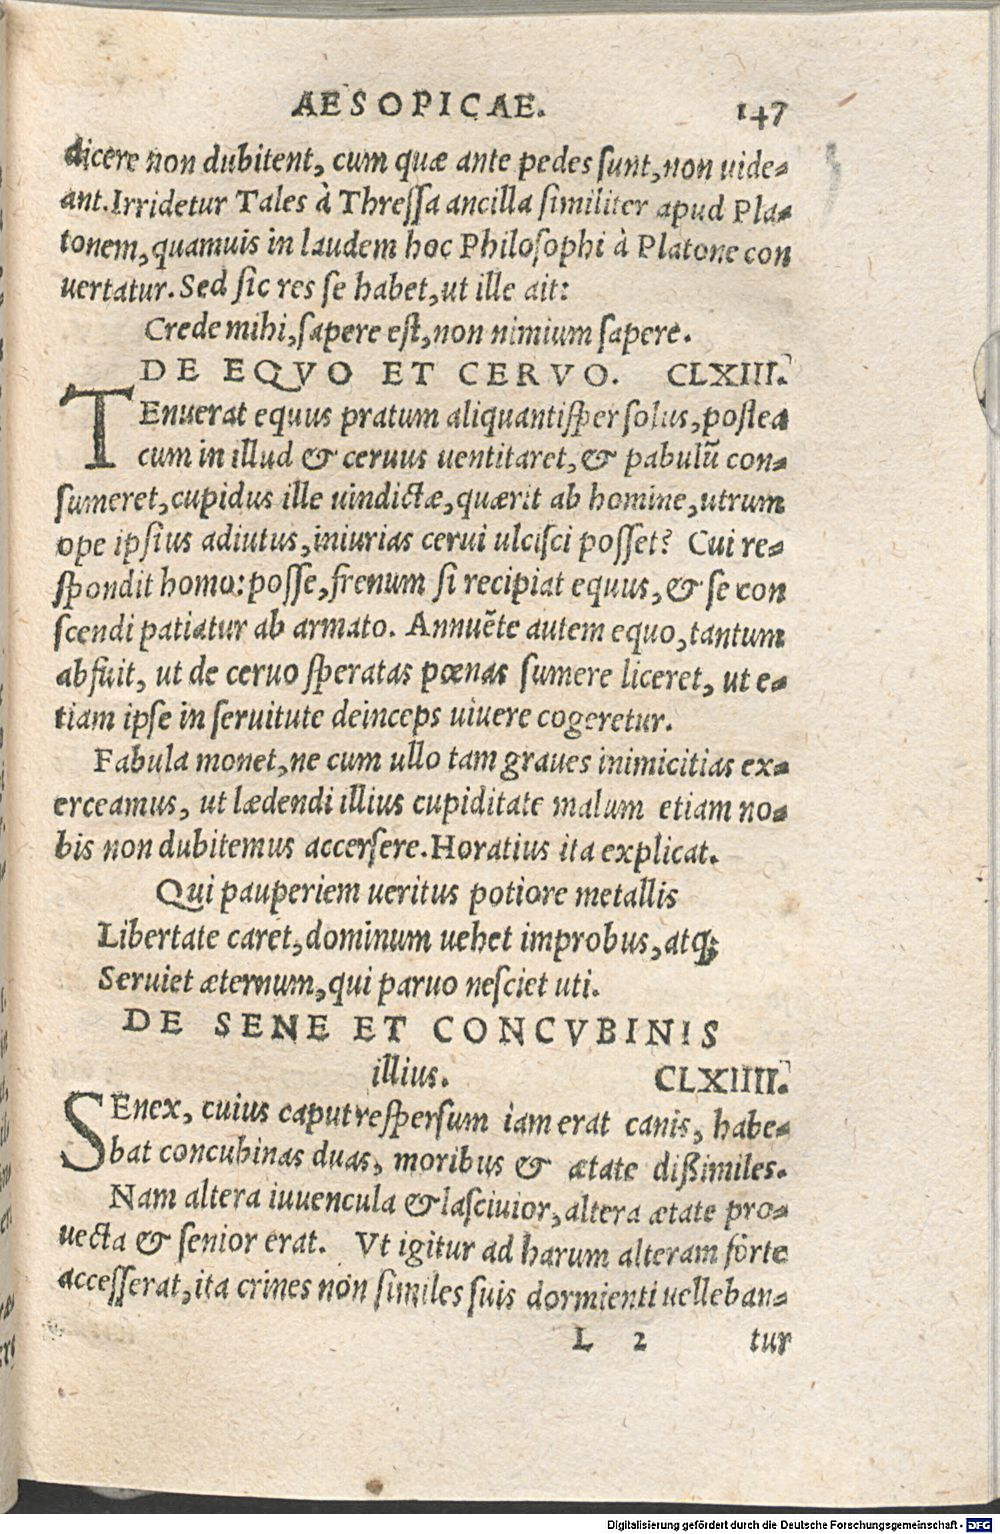 AESOPICAE. 147
dicere non dubitent, cum quæ ante pedes sunt, non uide-
ant. Irridetur Tales à Thressa ancilla similiter apud Pla-
tonem, quamuis in laudem hoc Philosophi à Platone con
uertatur. Sed sic res se habet, ut ille ait:
Crede mihi, sapere est, non nimium sapere.
DE EQVO ET CERVO. CLXIII.
TEnuerat equus pratum aliquantisper solus, postea
cum in illud & ceruus uentitaret, & pabulũ con-
sumeret, cupidus ille uindictæ, quærit ab homine, utrum
ope ipsius adiutus, iniurias cerui ulcisci posset? Cui re-
spondit homo: posse, frenum si recipiat equus, & se con
scendi patiatur ab armato. Annuẽte autem equo, tantum
abfuit, ut de ceruo speratas pœnas sumere liceret, ut e-
tiam ipse in seruitute deinceps uiuere cogeretur.
Fabula monet, ne cum ullo tam graues inimicitias ex-
erceamus, ut lædendi illius cupiditate malum etiam no-
bis non dubitemus accersere. Horatius ita explicat.
Qui pauperiem ueritus potiore metallis
Libertate caret, dominum uehet improbus, atq;
Seruiet æternum, qui paruo nesciet uti.
DE SENE ET CONCVBINIS
illius. CLXIIII.
SEnex, cuius caput respersum iam erat canis, habe-
bat concubinas duas, moribus & ætate dißimiles.
Nam altera iuuencula & lasciuior, altera ætate pro-
uecta & senior erat. Vt igitur ad harum alteram forte
accesserat, ita crines non similes suis dormienti uelleban-
L 2 tur
Digitalisierung gefördert durch die Deutsche Forschungsgemeinschaft - DFG